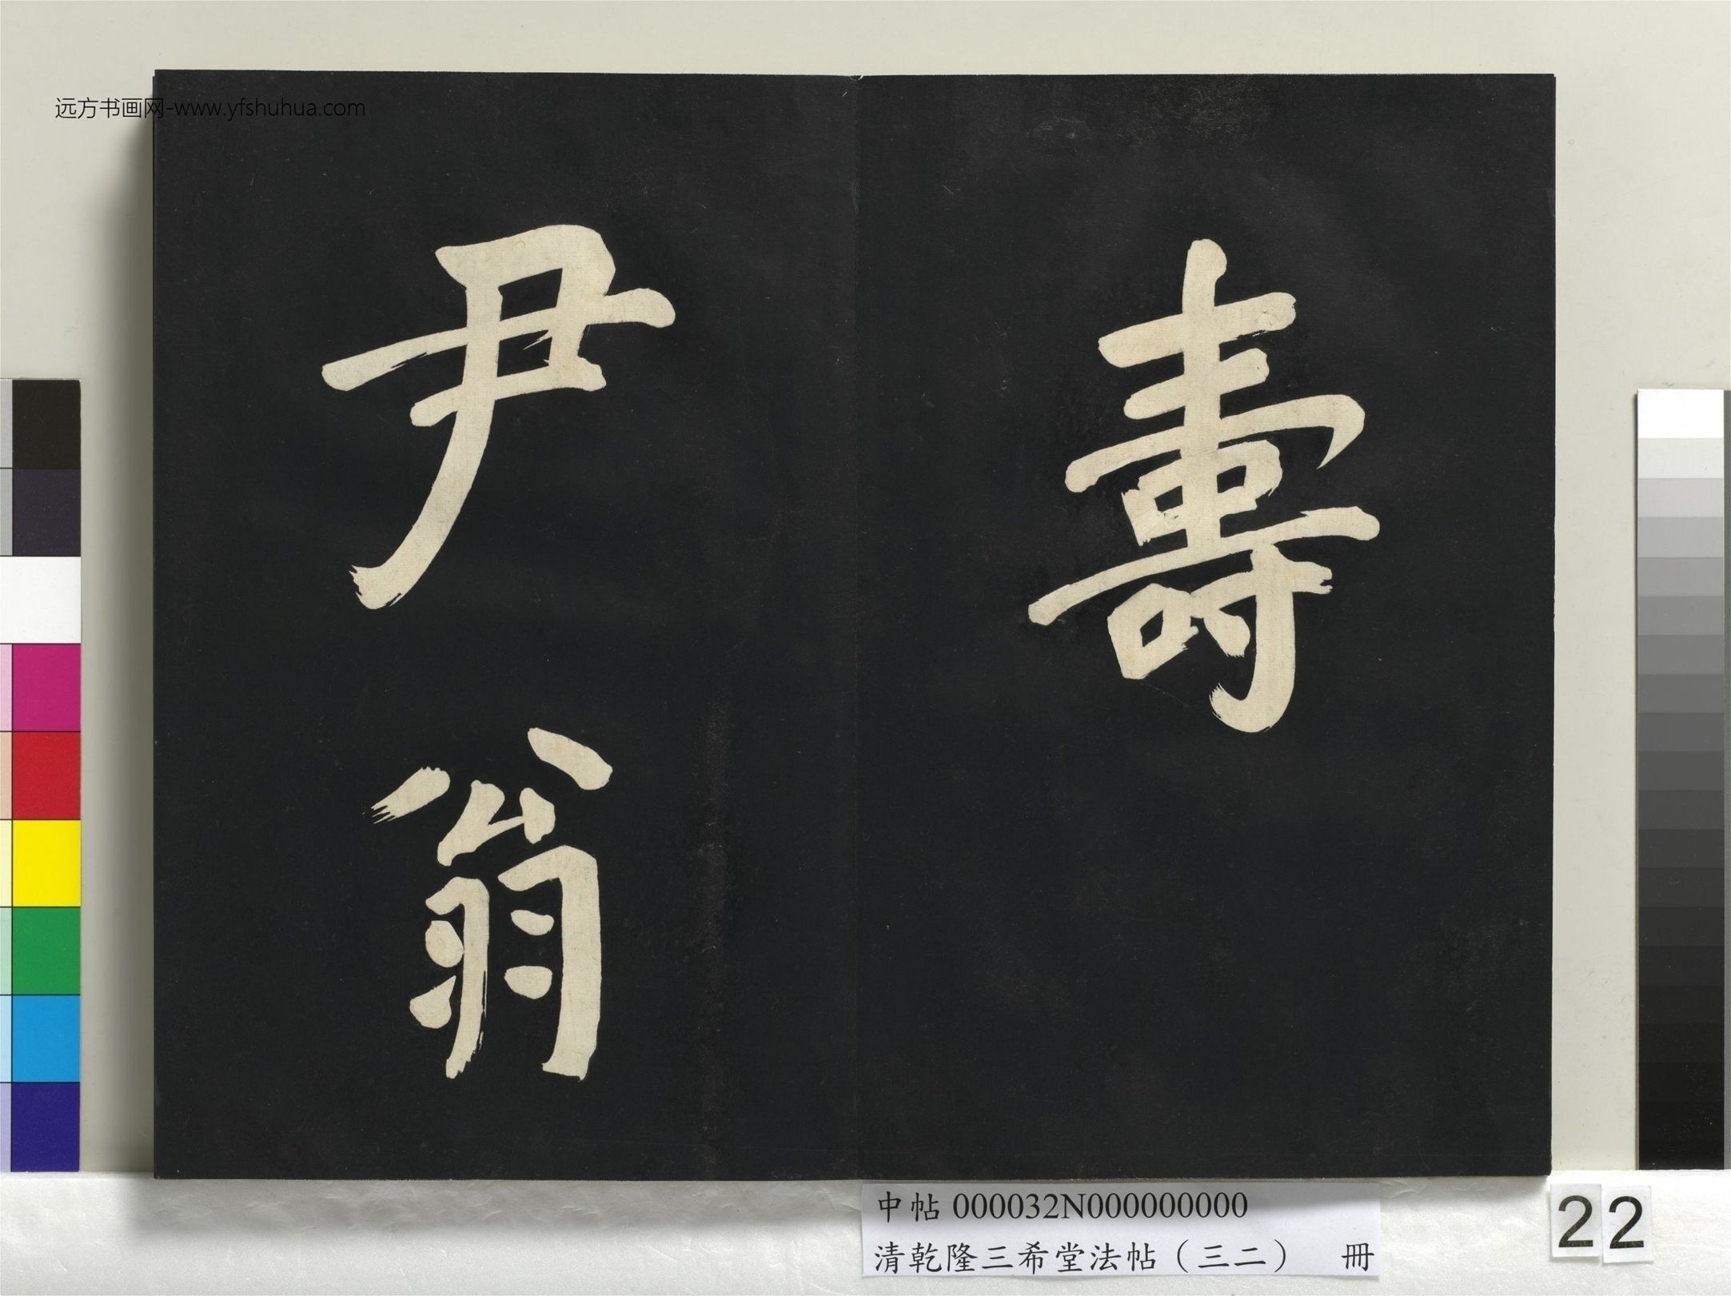 远方书画网-www.yfshuhua.com
壽
尹翁
中帖 000032N000000000
清乾隆三希堂法帖（三二） 冊
22